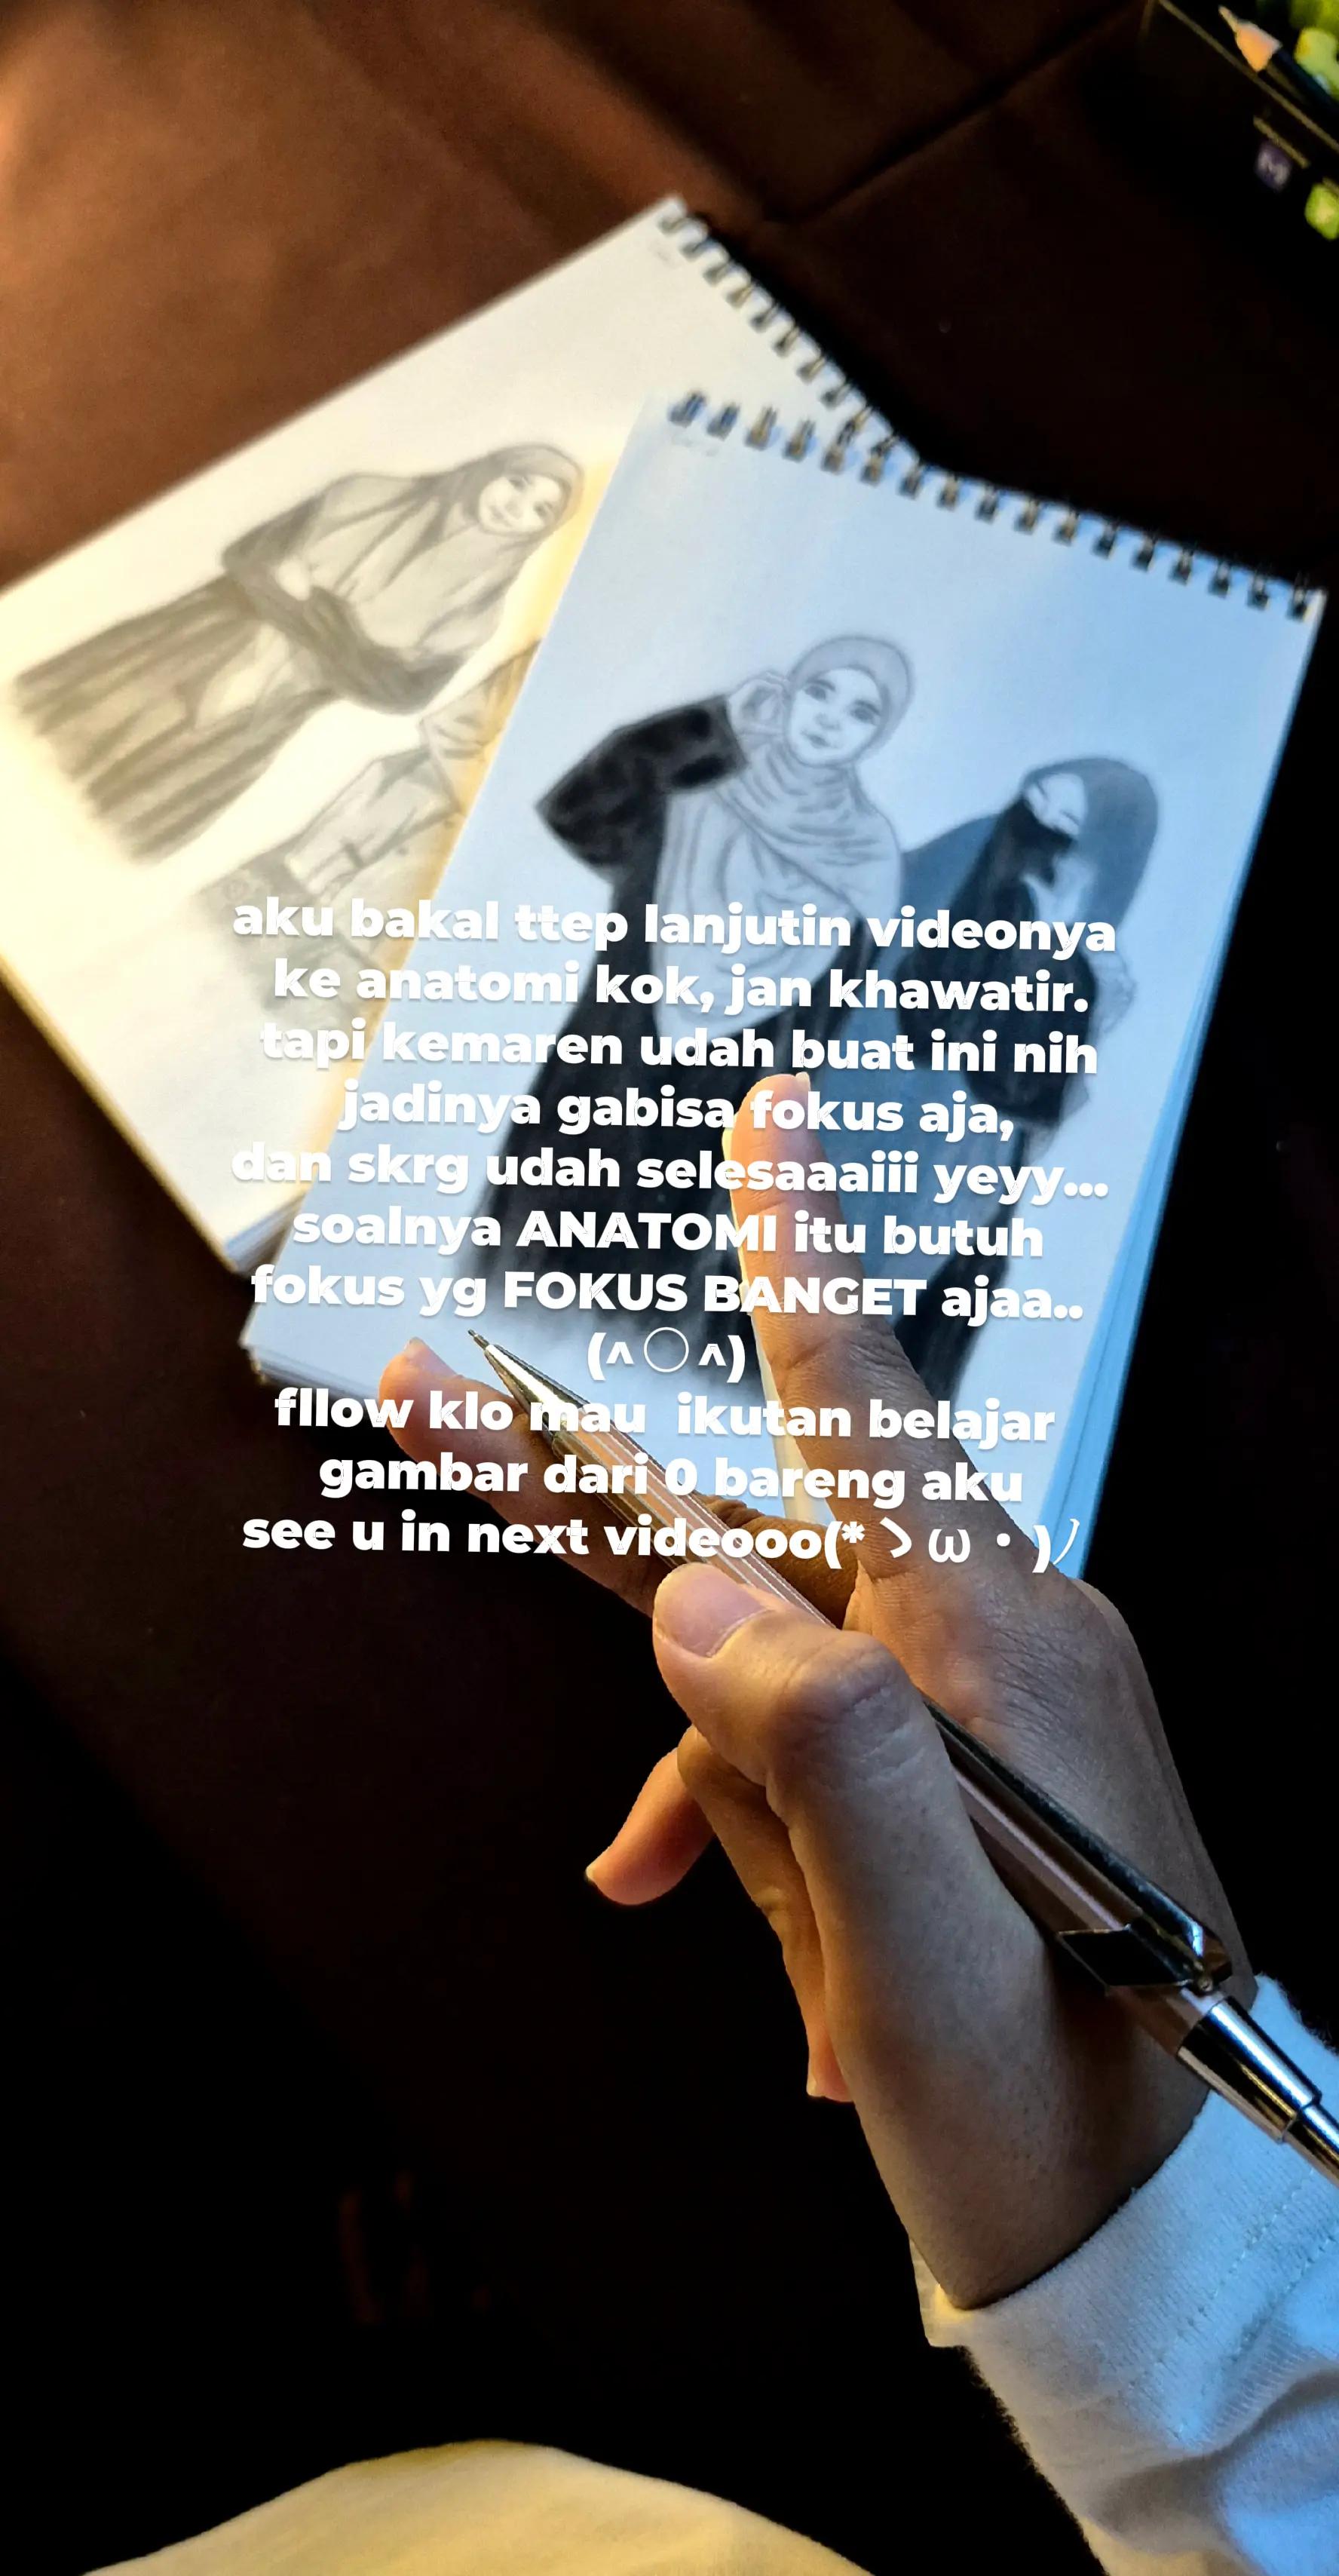 aku bakal ttep lanjutin videonya
ke anatomi kok, jan khawatir.
tapi kemaren udah buat ini nih
jadinya gabisa fokus aja,
dan skrg udah selesaaaiii yeyy...
soalnya ANATOMI itu butuh
fokus yg FOKUS BANGET ajaa..
(^○^)
fllow klo mau ikutan belajar
gambar dari 0 bareng aku
see u in next videooo(*ゝω・)ﾉ